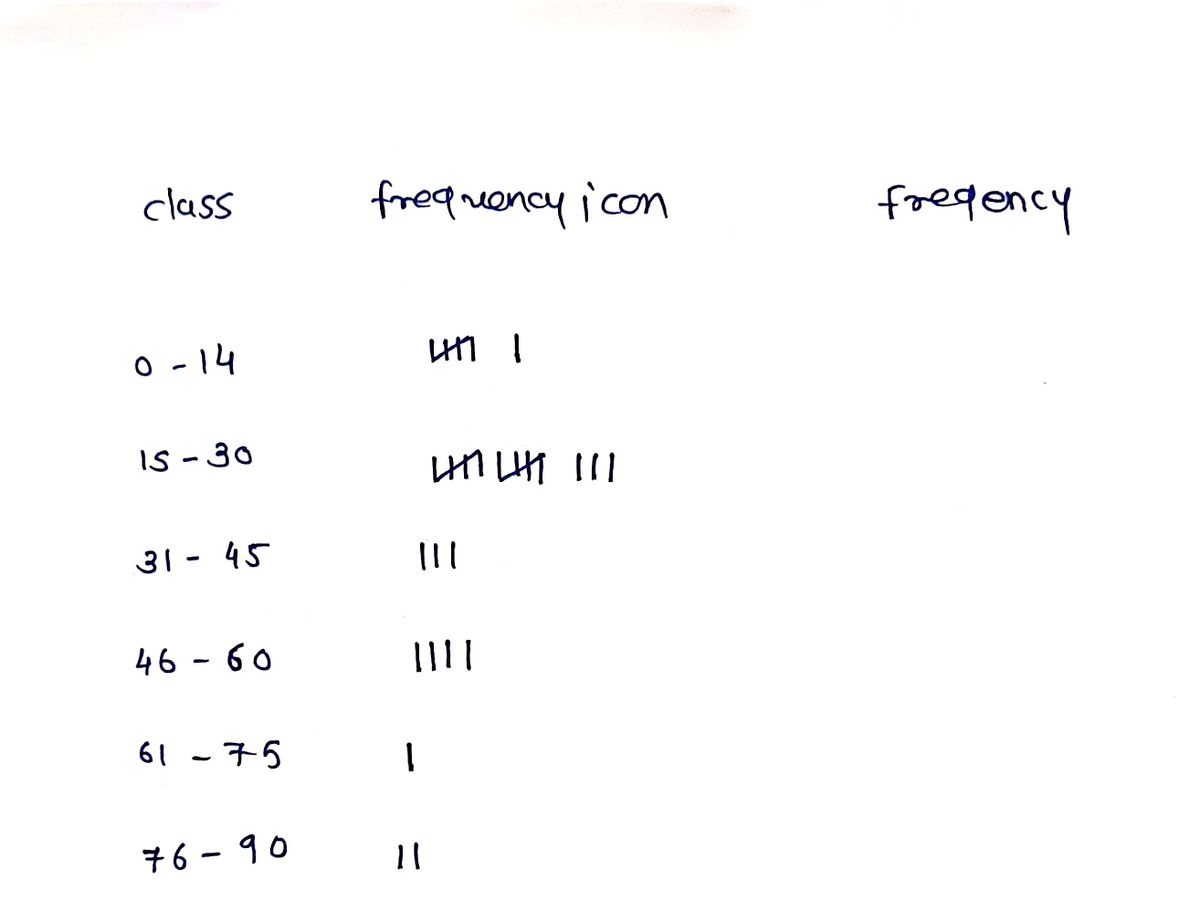 class frequency icon freqency
0 - 14 𝍸 |
15 - 30 𝍸 𝍸 |||
31 - 45 |||
46 - 60 ||||
61 - 75 |
76 - 90 ||